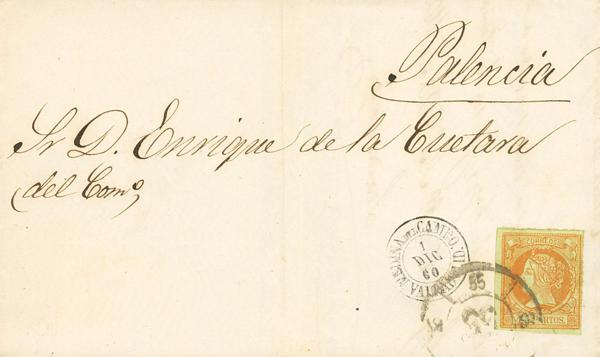 Palencia
Sr D. Enrique de la Cuetara
del Comº
MEDINA DEL CAMPO.
1
DIC
60
55
CORREOS
CUARTOS.